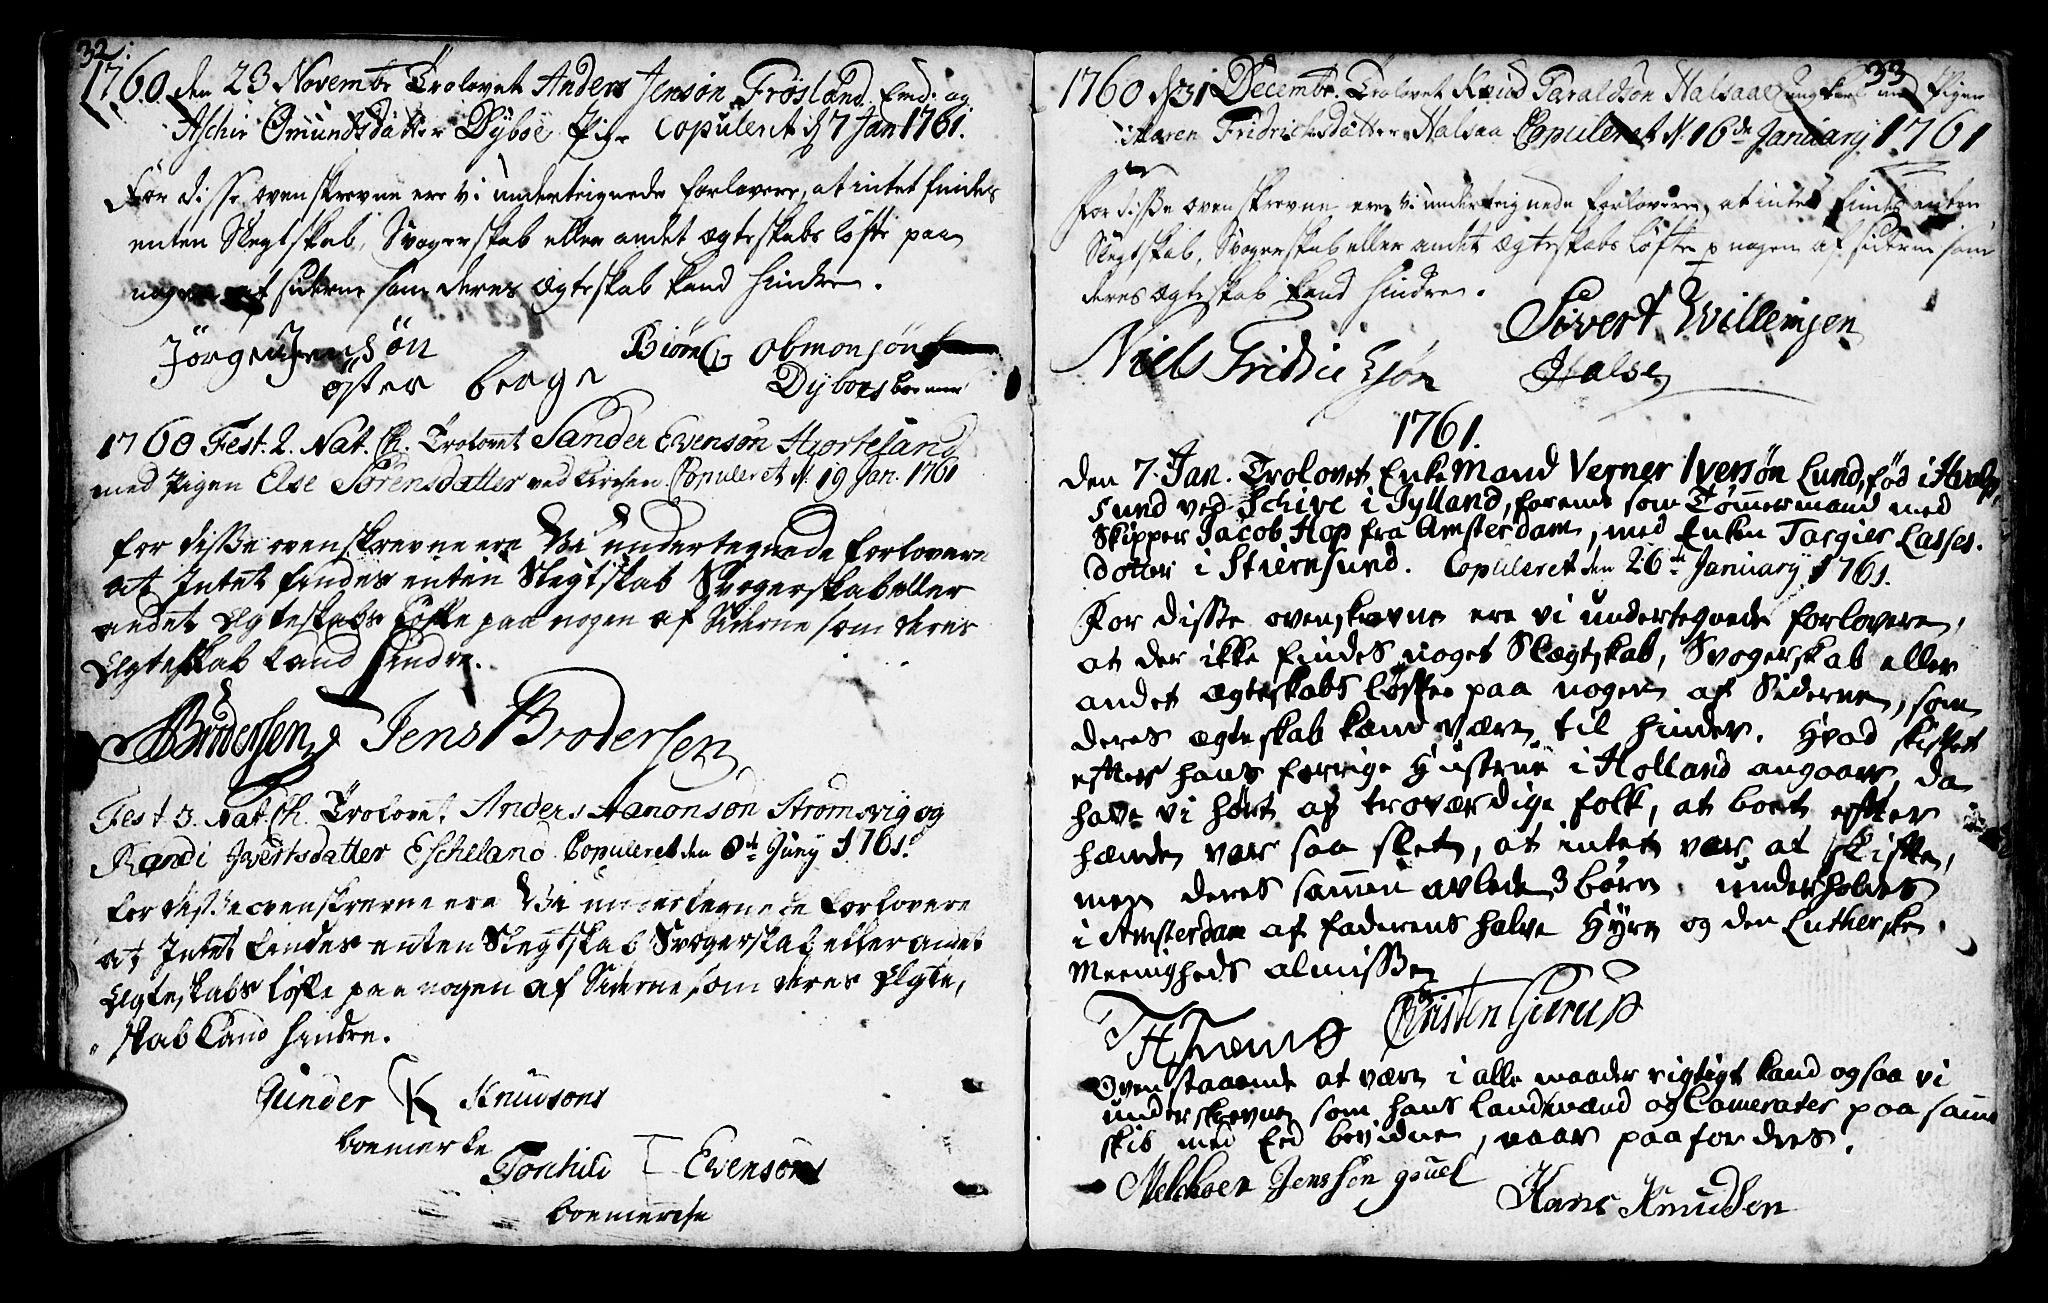 32.
1760 den 23 Novembr Trolovet Anders Jensøn Frøsland Emd: og
Aschie Omundsdatter Dyboe Pige Copuleret d 7 Jan 1761.
For disse ovenskrevne ere vi underteignede forlovere, at intet findes
enten Slegtskab, Svogerskab eller andet ægteskabs løfte paa
nogen af siderne som deres ægteskab kand hindre.
Jørgen Jensøn
øster berge
Biørn Obmonsøn
Dyboes boemer
1760 Fest. 2. Nat. Ch. Trolovet Sander Evensøn Hvortesand
med Pigen Else Sørensdatter ved Kirchen. Copuleret d. 19 Jan. 1761
for disse ovenskrevne ere Vi undertegnede forlovere
at Intet findes enten Slegtskab Svogerskab eller
andet Egteskabs Løfte paa nogen af Siderne som deres
Egteskab kand hindre.
Brodersen Jens Brodersen
Fest 3. Nat. Ch. Trolovet Anders Aanonsøn Strømsvig og
Randi Ivertsdatter Escheland Copuleret den 8de Juny 1761.
for disse ovenskrevne ere Vi undertegnede forlovere
at Intet findes enten Slegtskab Svogerskab eller andet
Egteskabs løfte paa nogen af Siderne som deres Egte,
skab kand hindre.
Gunder K Knudsons
boemerke
Torchild T Evensøns
boemerche
33
1760 d 31 Decembr. Trolovet Knud Taraldsøn Halsaae ungkarl med Pigen
Maren Fridrichsdatter Halsaa Copuleret d. 16de January 1761
For disse ovenskrevne ere vi underteignede forlovere, at intet findes enten
Slegtskab, Svogerskab eller andet Ægteskabs løfte p nogen af siderne som
deres ægteskab kand hindre.
Niels Fridricsøn
Sivert Willemsen
Halse
1761.
Den 7. Jan. Trolovet Enkemand Verner Iversøn Lund, fød i Hvalp,
sund ved Schive i Jylland, farende som Tømmermand med
Skipper Jacob Hop fra Amsterdam, med Enken Targier Lasses.
dotter i Stiernsund. Copuleret den 26de January 1761.
For disse ovenskrevne ere vi undertegnede forlovere,
at der ikke findes noget Slægtskab, Svogerskab eller
andet ægteskabs løfte paa nogen af Siderne, som
deres ægteskab kand være til hinder. Hvad skiftet
efter hans forrige Hustrue i Holland angaaer, da
have vi hørt af troværdige folk, at boet efter
hænde var saa slet, at intet var at skifte,
men deres sammen avlede 3 børn underholdes
i Amsterdam af faderens halve Hyre og den Lutherske
Meenigheds almisse
Christen Gierup
Ovenstaaende at være i alle maader rigtigt kand ogsaa vi
underskrevne som hans landsmænd og Camerater paa samme
skib med Eed bevidne, naar paafordres.
Melchior Jenssøn
Hans Knudsen